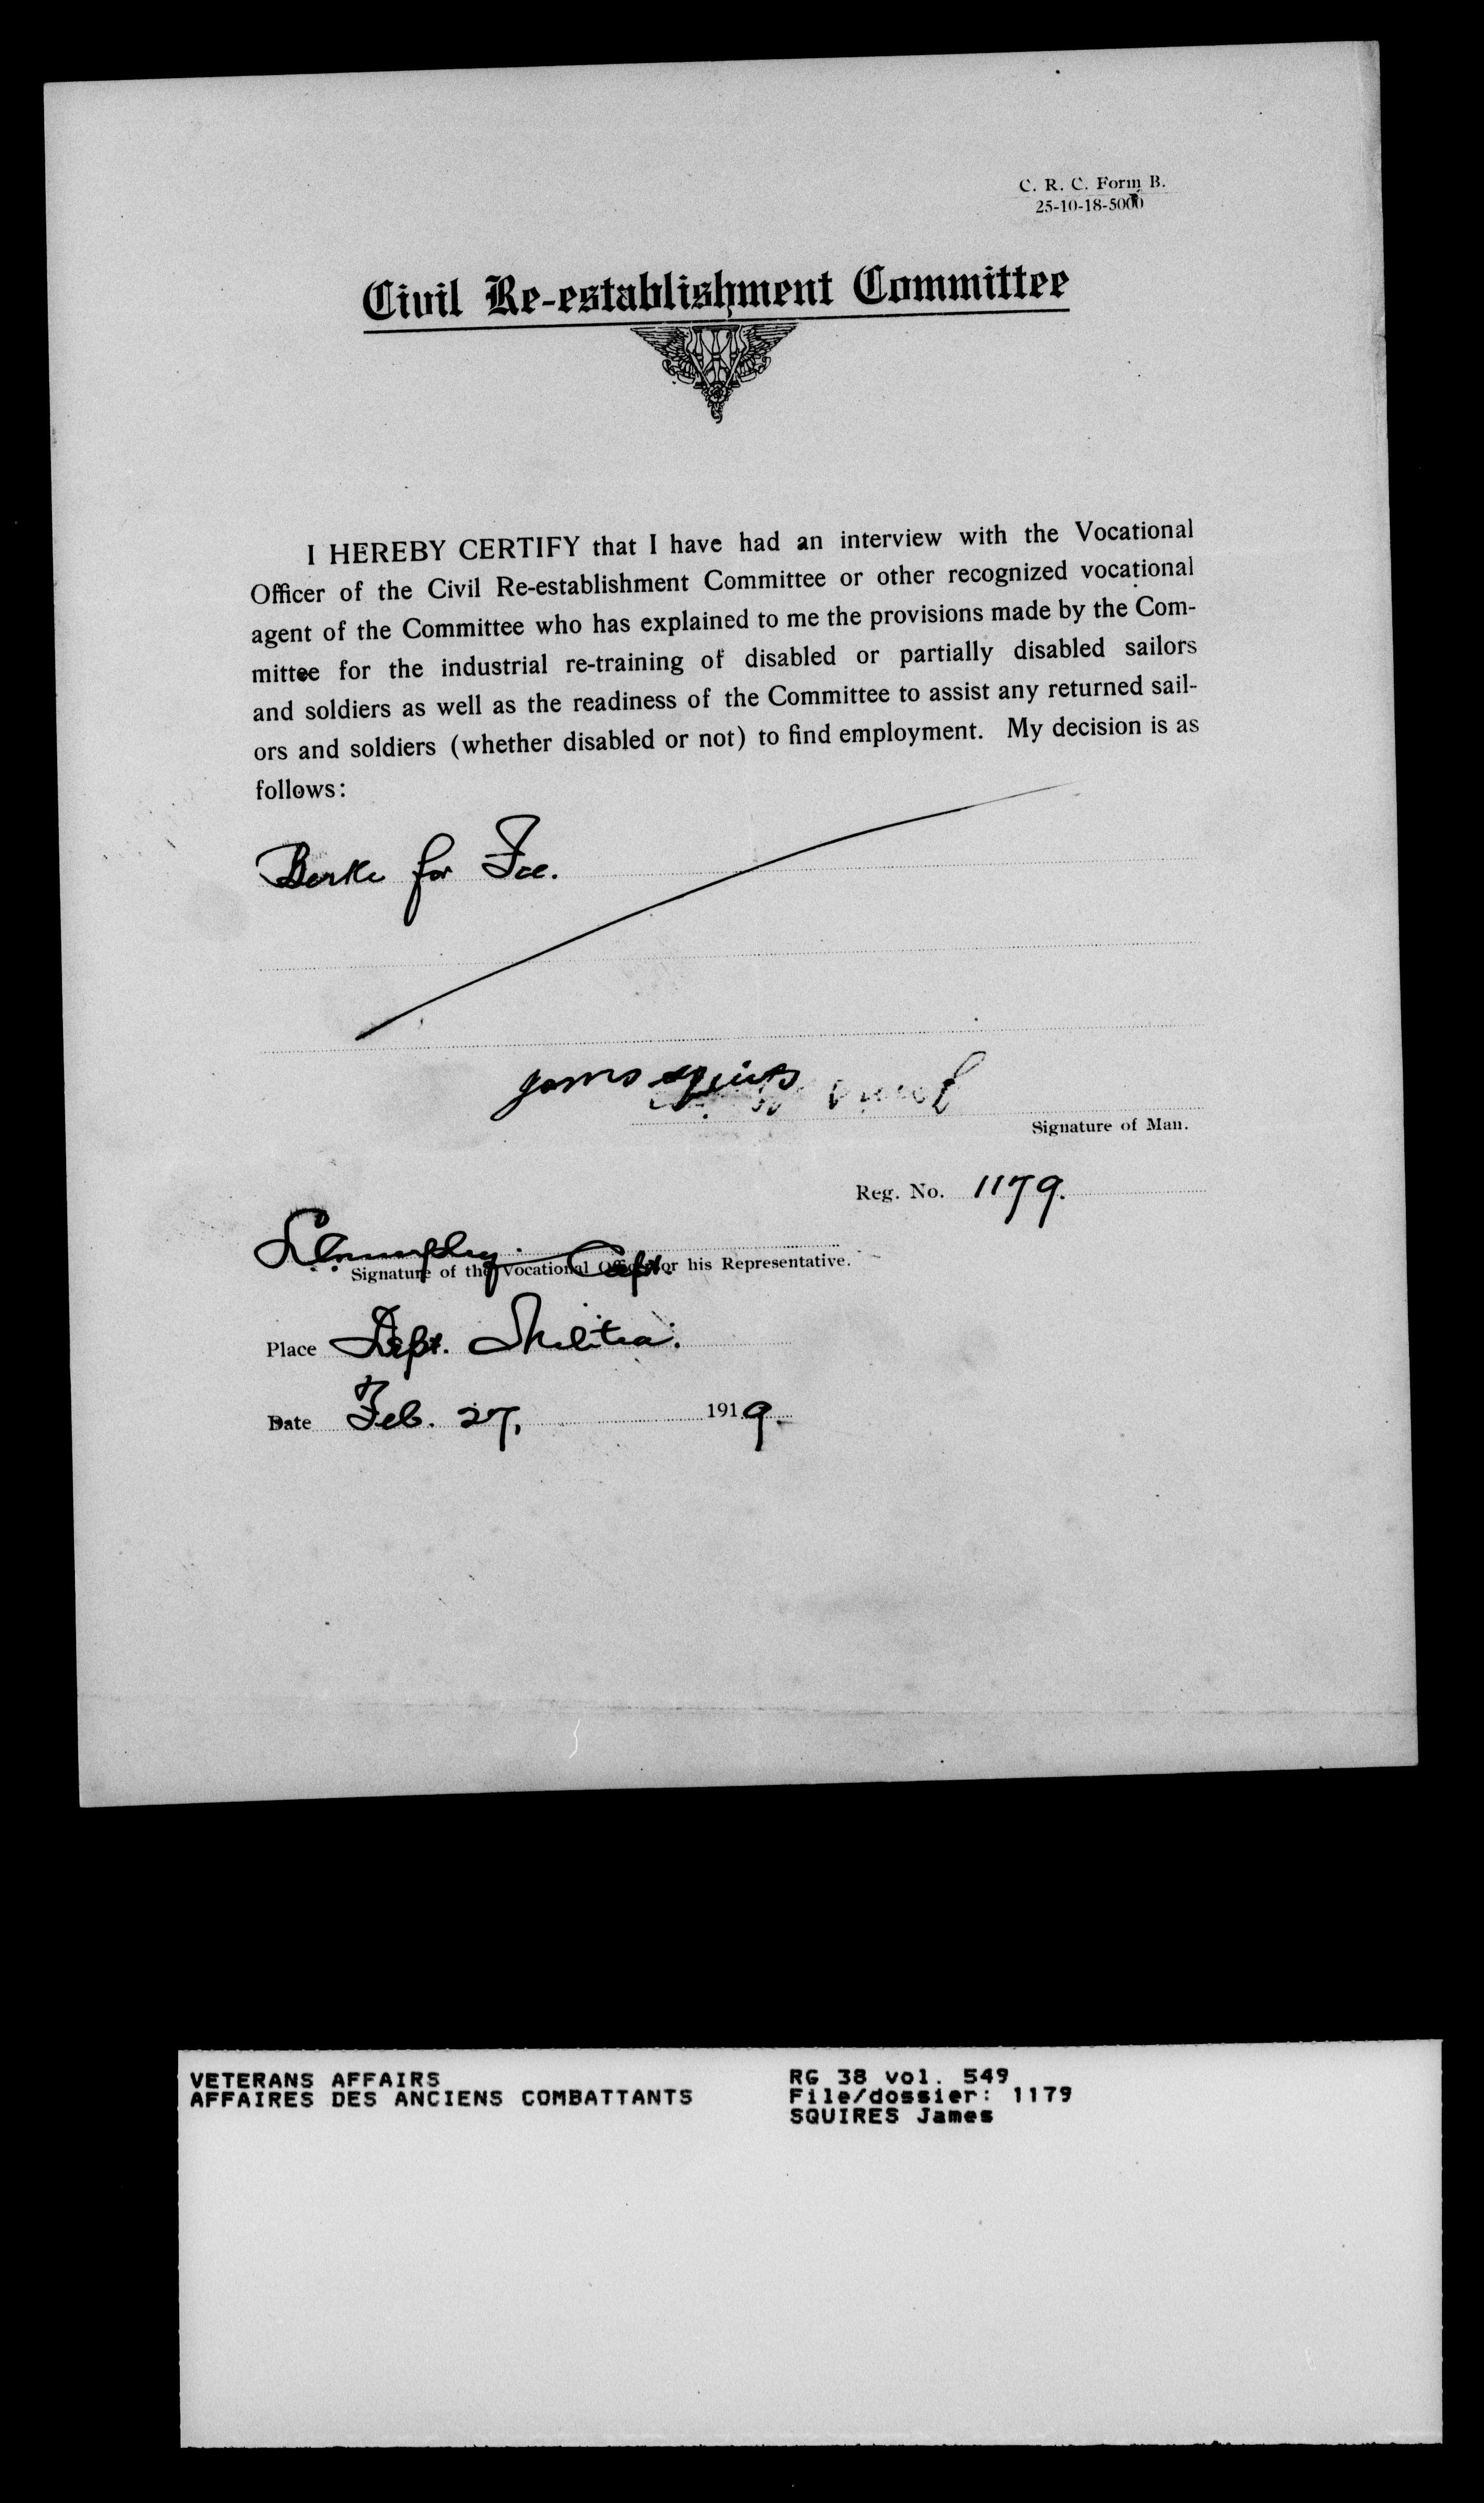 C. R. C. Form B.
25-10-18-5000
Civil Re-establishment Committee
I HEREBY CERTIFY that I have had an interview with the Vocational
Officer of the Civil Re-establishment Committee or other recognized vocational
agent of the Committee who has explained to me the provisions made by the Com-
mittee for the industrial re-training of disabled or partially disabled sailors
and soldiers as well as the readiness of the Committee to assist any returned sail-
ors and soldiers (whether disabled or not) to find employment. My decision is as
follows:
for
James Squires
Signature of Man.
Reg. No. 1179.
Capt.
Signature of the Vocational Officer or his Representative.
Place Dept. Militia.
Date Feb. 27, 1919.
VETERANS AFFAIRS
AFFAIRES DES ANCIENS COMBATTANTS
RG 38 vol. 549
File/dossier: 1179
SQUIRES James